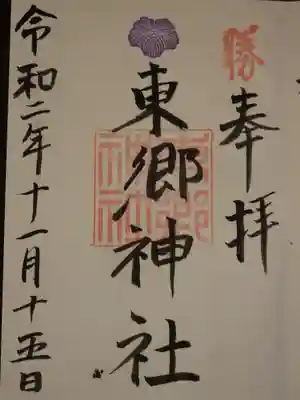 勝
奉拝
東郷神社
令和二年十一月十五日